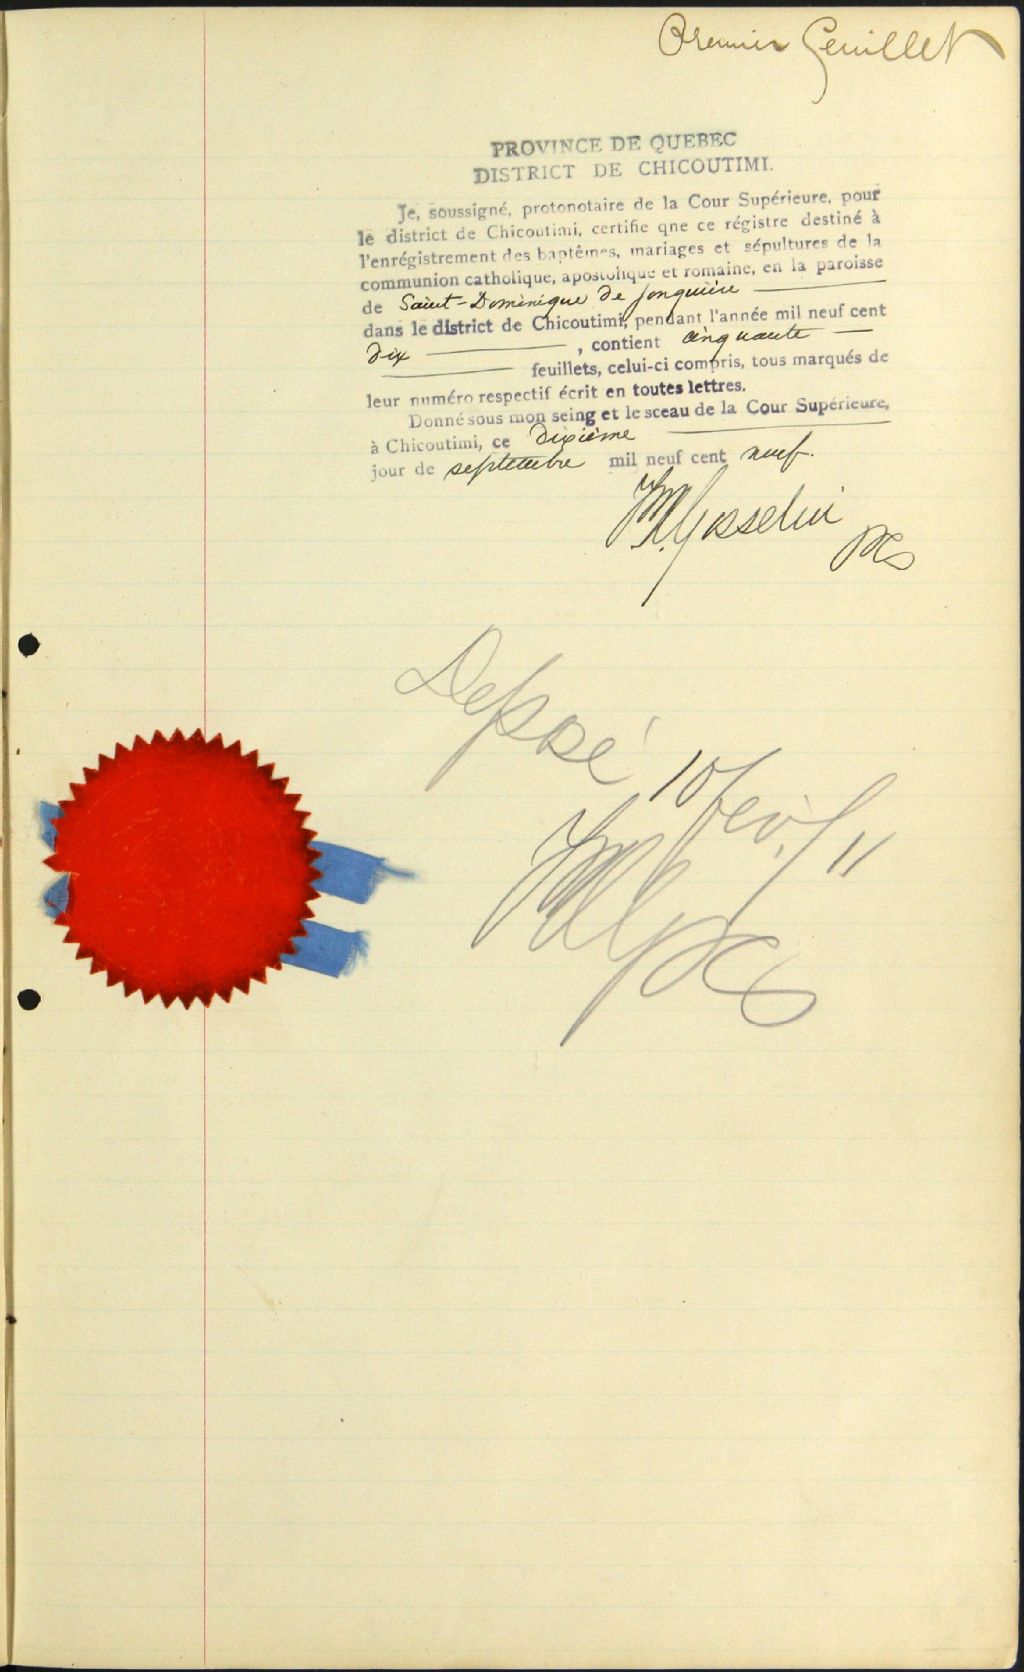 Premier Feuillet
PROVINCE DE QUEBEC
DISTRICT DE CHICOUTIMI.
Je, soussigné, protonotaire de la Cour Supérieure, pour
le district de Chicoutimi, certifie qne ce régistre destiné à
l'enrégistrement des baptêmes, mariages et sépultures de la
communion catholique, apostolique et romaine, en la paroisse
de Saint-Dominique de Jonquière
dans le district de Chicoutimi, pendant l'année mil neuf cent
dix , contient cinquante
feuillets, celui-ci compris, tous marqués de
leur numéro respectif écrit en toutes lettres.
Donné sous mon seing et le sceau de la Cour Supérieure,
à Chicoutimi, ce dixième
jour de septembre mil neuf cent neuf.
Gosselin
PCS
Déposé 10 fev. / 11